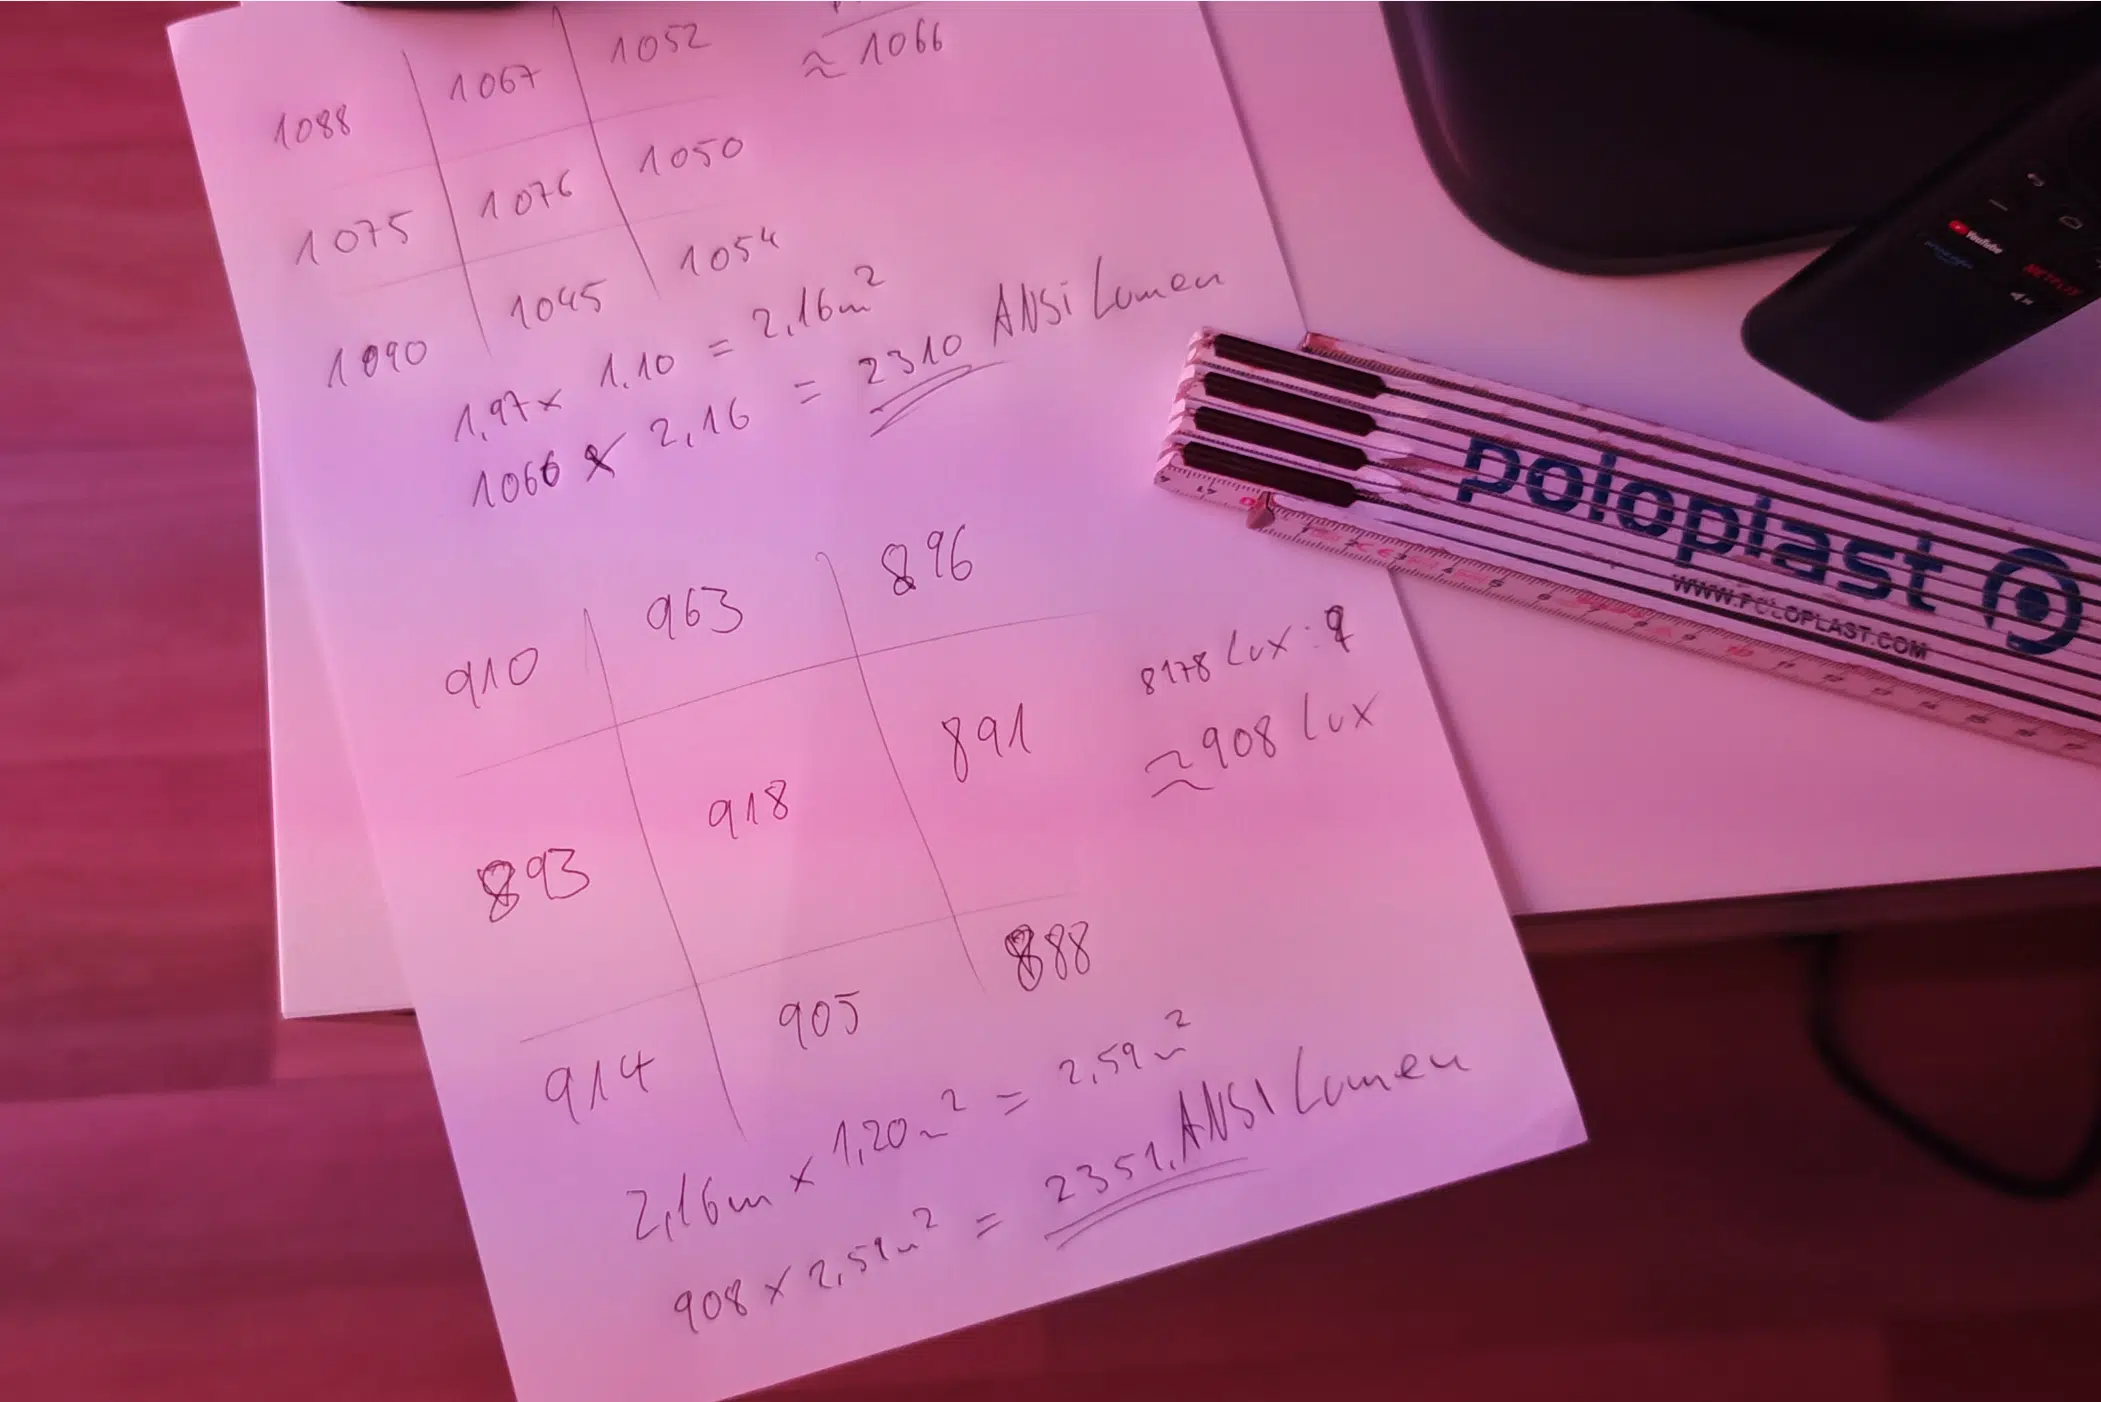 1088 1067 1052
≈ 1066
1075 1076 1050
1090 1045 1054
1,97 x 1.10 = 2,16m²
1066 x 2,16 = 2310 ANSi Lumen
910 963 896
893 918 891
914 905 888
8178 Lux : 9
≈ 908 Lux
2,16m x 1,20m² = 2,59m²
908 x 2,59m² = 2351, ANSI Lumen
poloplast
WWW.POLOPLAST.COM
YouTube
NETFLIX